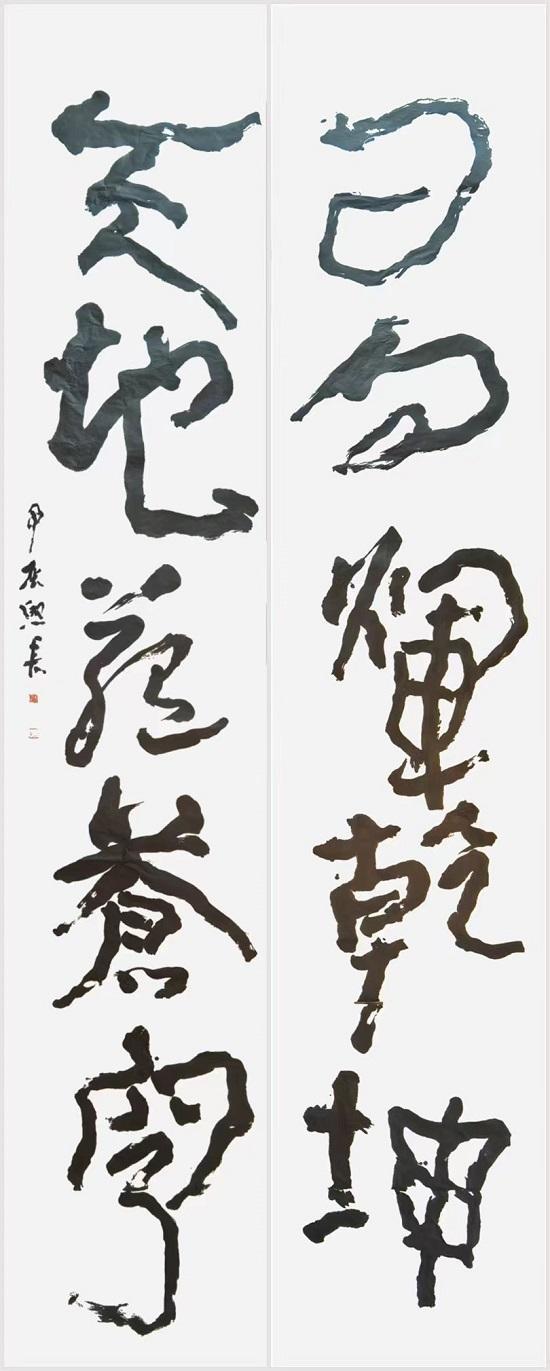 日月輝乾坤
天地蒼穹
甲辰